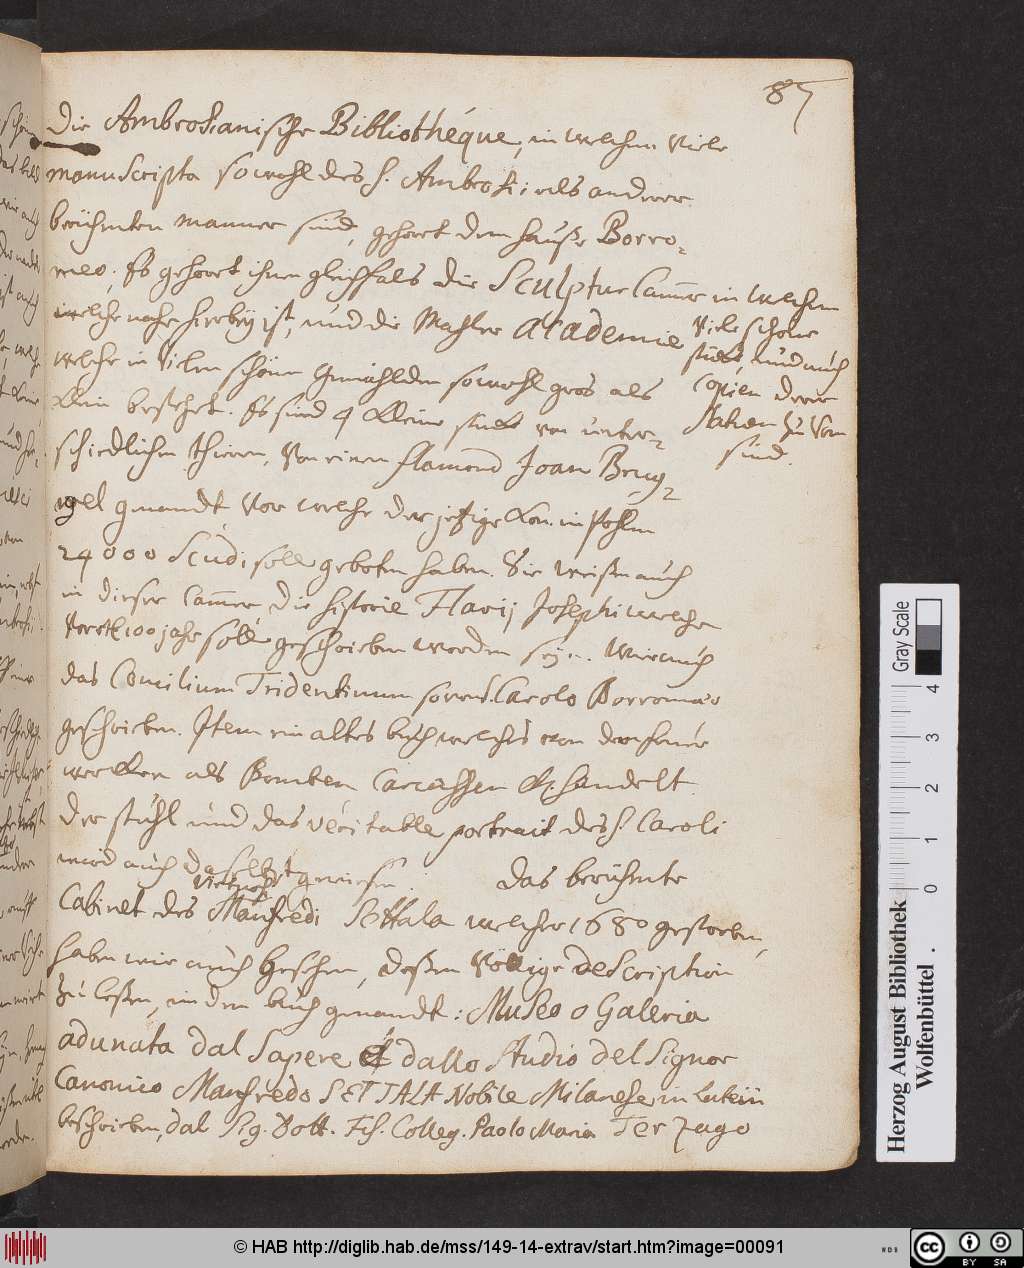 87
Die Ambrosianische Bibliothéque, in welchen viele
manuscripta sowohl des h. Ambrosii als anderer
berühmten manner sind, gehoret dem hauße Borro-
meo; Es gehoret ihnen gleichfals die Sculptur Camer in welchen
viele schöne
stücke, und auch
copien derer
Statuen zu Rom
sind.
welche nahe hierbey ist, und die Mahler academie
welche in vielen schönen Gemählden sowohl gros als
klein bestehet. Es sind 4 kleine stücke von unter-
schiedlichen thieren, von einen flamend Joan Breug-
gel genandt vor welche der jetzige Kön. in Pohlen
24000 Scudi soll geboten haben. Sie weißen auch
in dieser Camer die historie Flavij Josephi welche
vor 1100 jahr soll geschrieben worden seyn. Wie auch
das Concilium Tridentinum so von S. Carolo Borromæo
geschrieben. Item ein altes buch welches von den feuer
wercken als Bomben Carcassen &c. handelt.
Der stuhl und das véritable portrait des h. Caroli
wird auch daselbst gewiesen. Das berühmte
Cabinet des Manfredi Settala welcher 1680 gestorben,
haben wir auch gesehen, deßen völlige description
zu leßen, in den buch genandt: Museo o Galeria
adunata dal Sapere è dallo Studio del Signor
Canonico Manfredo SETTALA Nobile Milanese, in Latein
beschrieben, dal Sig. Dott. Fis. Colleg. Paolo Maria Terzago
Herzog August Bibliothek
Wolfenbüttel
Gray Scale
0 1 2 3 4
© HAB http://diglib.hab.de/mss/149-14-extrav/start.htm?image=00091
cc BY SA